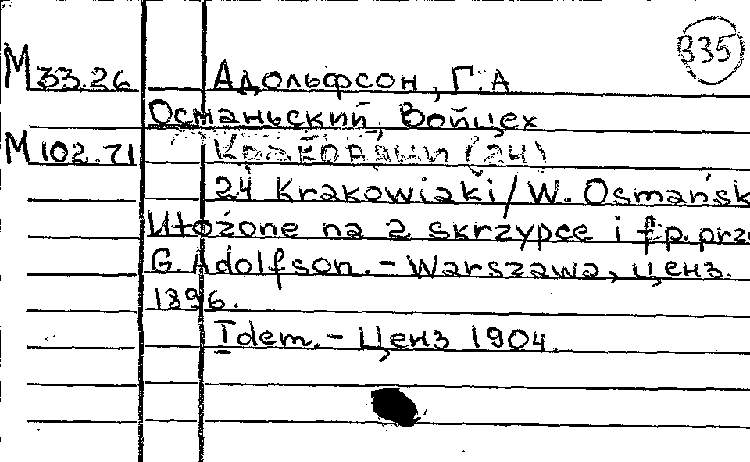 335
М 33.26 Адольфсон, Г.А
Останьский, Войцех
М 102.71 Краковяки (24)
24 Krakowiaki/W. Osmańsk
Ułożone na 2 skrzypce i fp. prz
G. Adolfson. – Warszawa, ценз.
1896.
Idem. – Ценз 1904.